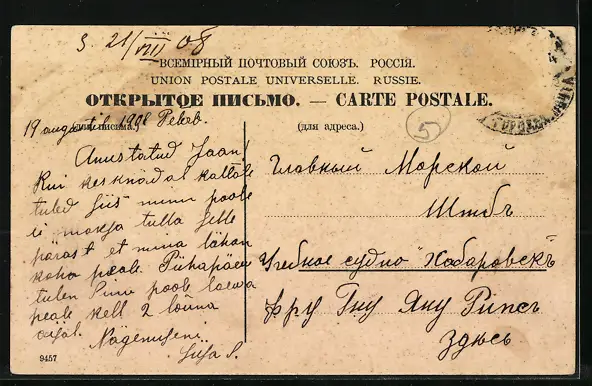 S. 21/VIII 08
ВСЕМІРНЫЙ ПОЧТОВЫЙ СОЮЗЪ. РОССІЯ.
UNION POSTALE UNIVERSELLE. RUSSIE.
ОТКРЫТОЕ ПИСЬМО. — CARTE POSTALE.
19 augustil 1908
(для письма.)
(для адреса.)
5
Armstatud Jaan!
Kui kesknädal
tuled siis minu poole
ei maksa tulla selle
pärast et mina lähan
koha peale. Pühapäew
tulen Sinu poole laewa
peale kell 2 lõuna
aijal. Nägemiseni.
9457
Главный Морской
Штабъ
Учебное судно "Хабаровскъ
Гну Яну
Здѣсь